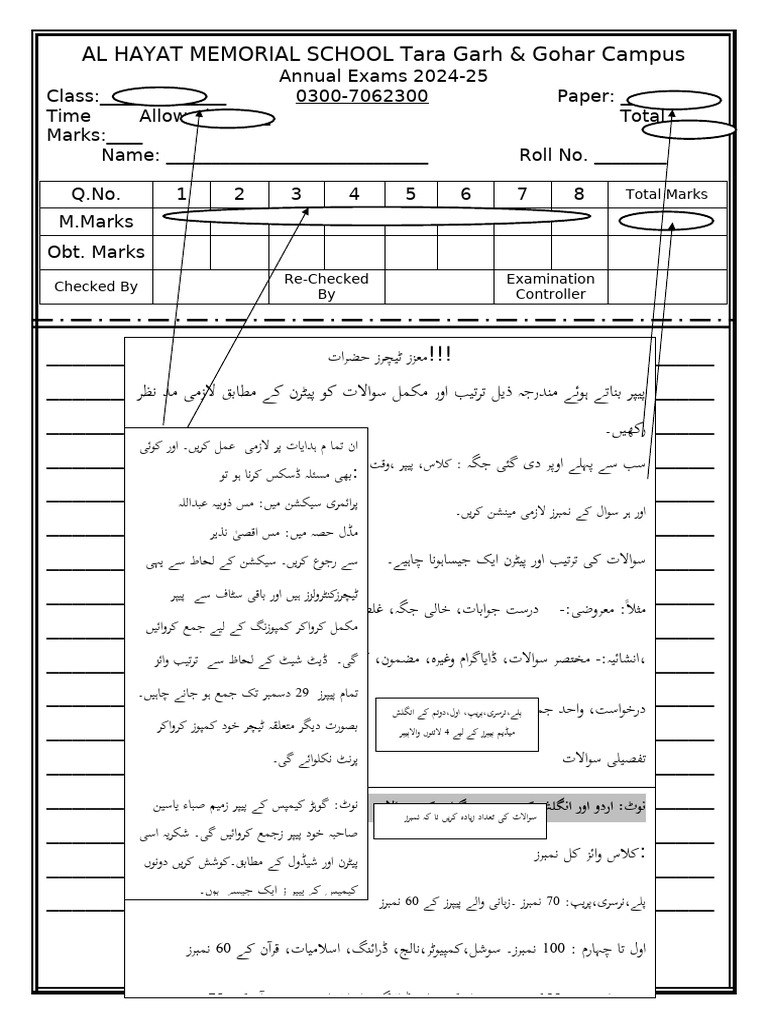 AL HAYAT MEMORIAL SCHOOL Tara Garh & Gohar Campus
Annual Exams 2024-25
Class: 0300-7062300 Paper:
Time Total
Marks:
Name: Roll No.
Q.No. 1 2 3 4 5 6 7 8 Total Marks
M.Marks
Obt. Marks
Checked By Re-Checked By Examination Controller
معزز ٹیچرز حضرات!!!
پیپر بناتے ہوئے مندرجہ ذیل ترتیب اور مکمل سوالات کو پیٹرن کے مطابق لازمی مد نظر
رکھیں۔
سب سے پہلے اوپر دی گئی جگہ : کلاس، پیپر ،وقت
اور ہر سوال کے نمبرز لازمی مینشن کریں۔
سوالات کی ترتیب اور پیٹرن ایک جیساہونا چاہیے۔
مثلاً: معروضی:- درست جوابات، خالی جگہ،
انشائیہ:- مختصر سوالات، ڈایاگرام وغیرہ، مضمون،
درخواست، واحد
تفصیلی سوالات
نوٹ: اردو اور
کلاس وائز کل نمبرز:
پلے،نرسری،پریپ: 70 نمبرز ۔زبانی والے پیپرز کے 60 نمبرز
اول تا چہارم : 100 نمبرز۔ سوشل،کمپیوٹر،نالج، ڈرائنگ، اسلامیات، قرآن کے 60 نمبرز
ان تما م ہدایات پر لازمی عمل کریں۔ اور کوئی
بھی مسئلہ ڈسکس کرنا ہو تو:
پرائمری سیکشن میں: مس ذوبیہ عبداللہ
مڈل حصہ میں: مس اقصیٰ نذیر
سے رجوع کریں۔ سیکشن کے لحاظ سے یہی
ٹیچرزکنٹرولرز ہیں اور باقی سٹاف سے پیپر
مکمل کرواکر کمپوزنگ کے لیے جمع کروائیں
گی۔ ڈیٹ شیٹ کے لحاظ سے ترتیب وائز
تمام پیپرز 29 دسمبر تک جمع ہو جانے چاہیں۔
بصورت دیگر متعلقہ ٹیچر خود کمپوز کرواکر
پرنٹ نکلوائے گی۔
نوٹ: گوہڑ کیمپس کے پیپر زمیم صباء یاسین
صاحبہ خود پیپر زجمع کروائیں گی۔ شکریہ اسی
پیٹرن اور شیڈول کے مطابق۔کوشش کریں دونوں
کیمپس کے پیپر ز ایک جیسے ہوں۔
پلے،نرسری،پریپ، اول،دوئم کے انگلش
میڈیم پیپرز کے لیے 4 لائنوں والاپیپر
سوالات کی تعداد زیادہ کریں نا کہ نمبرز